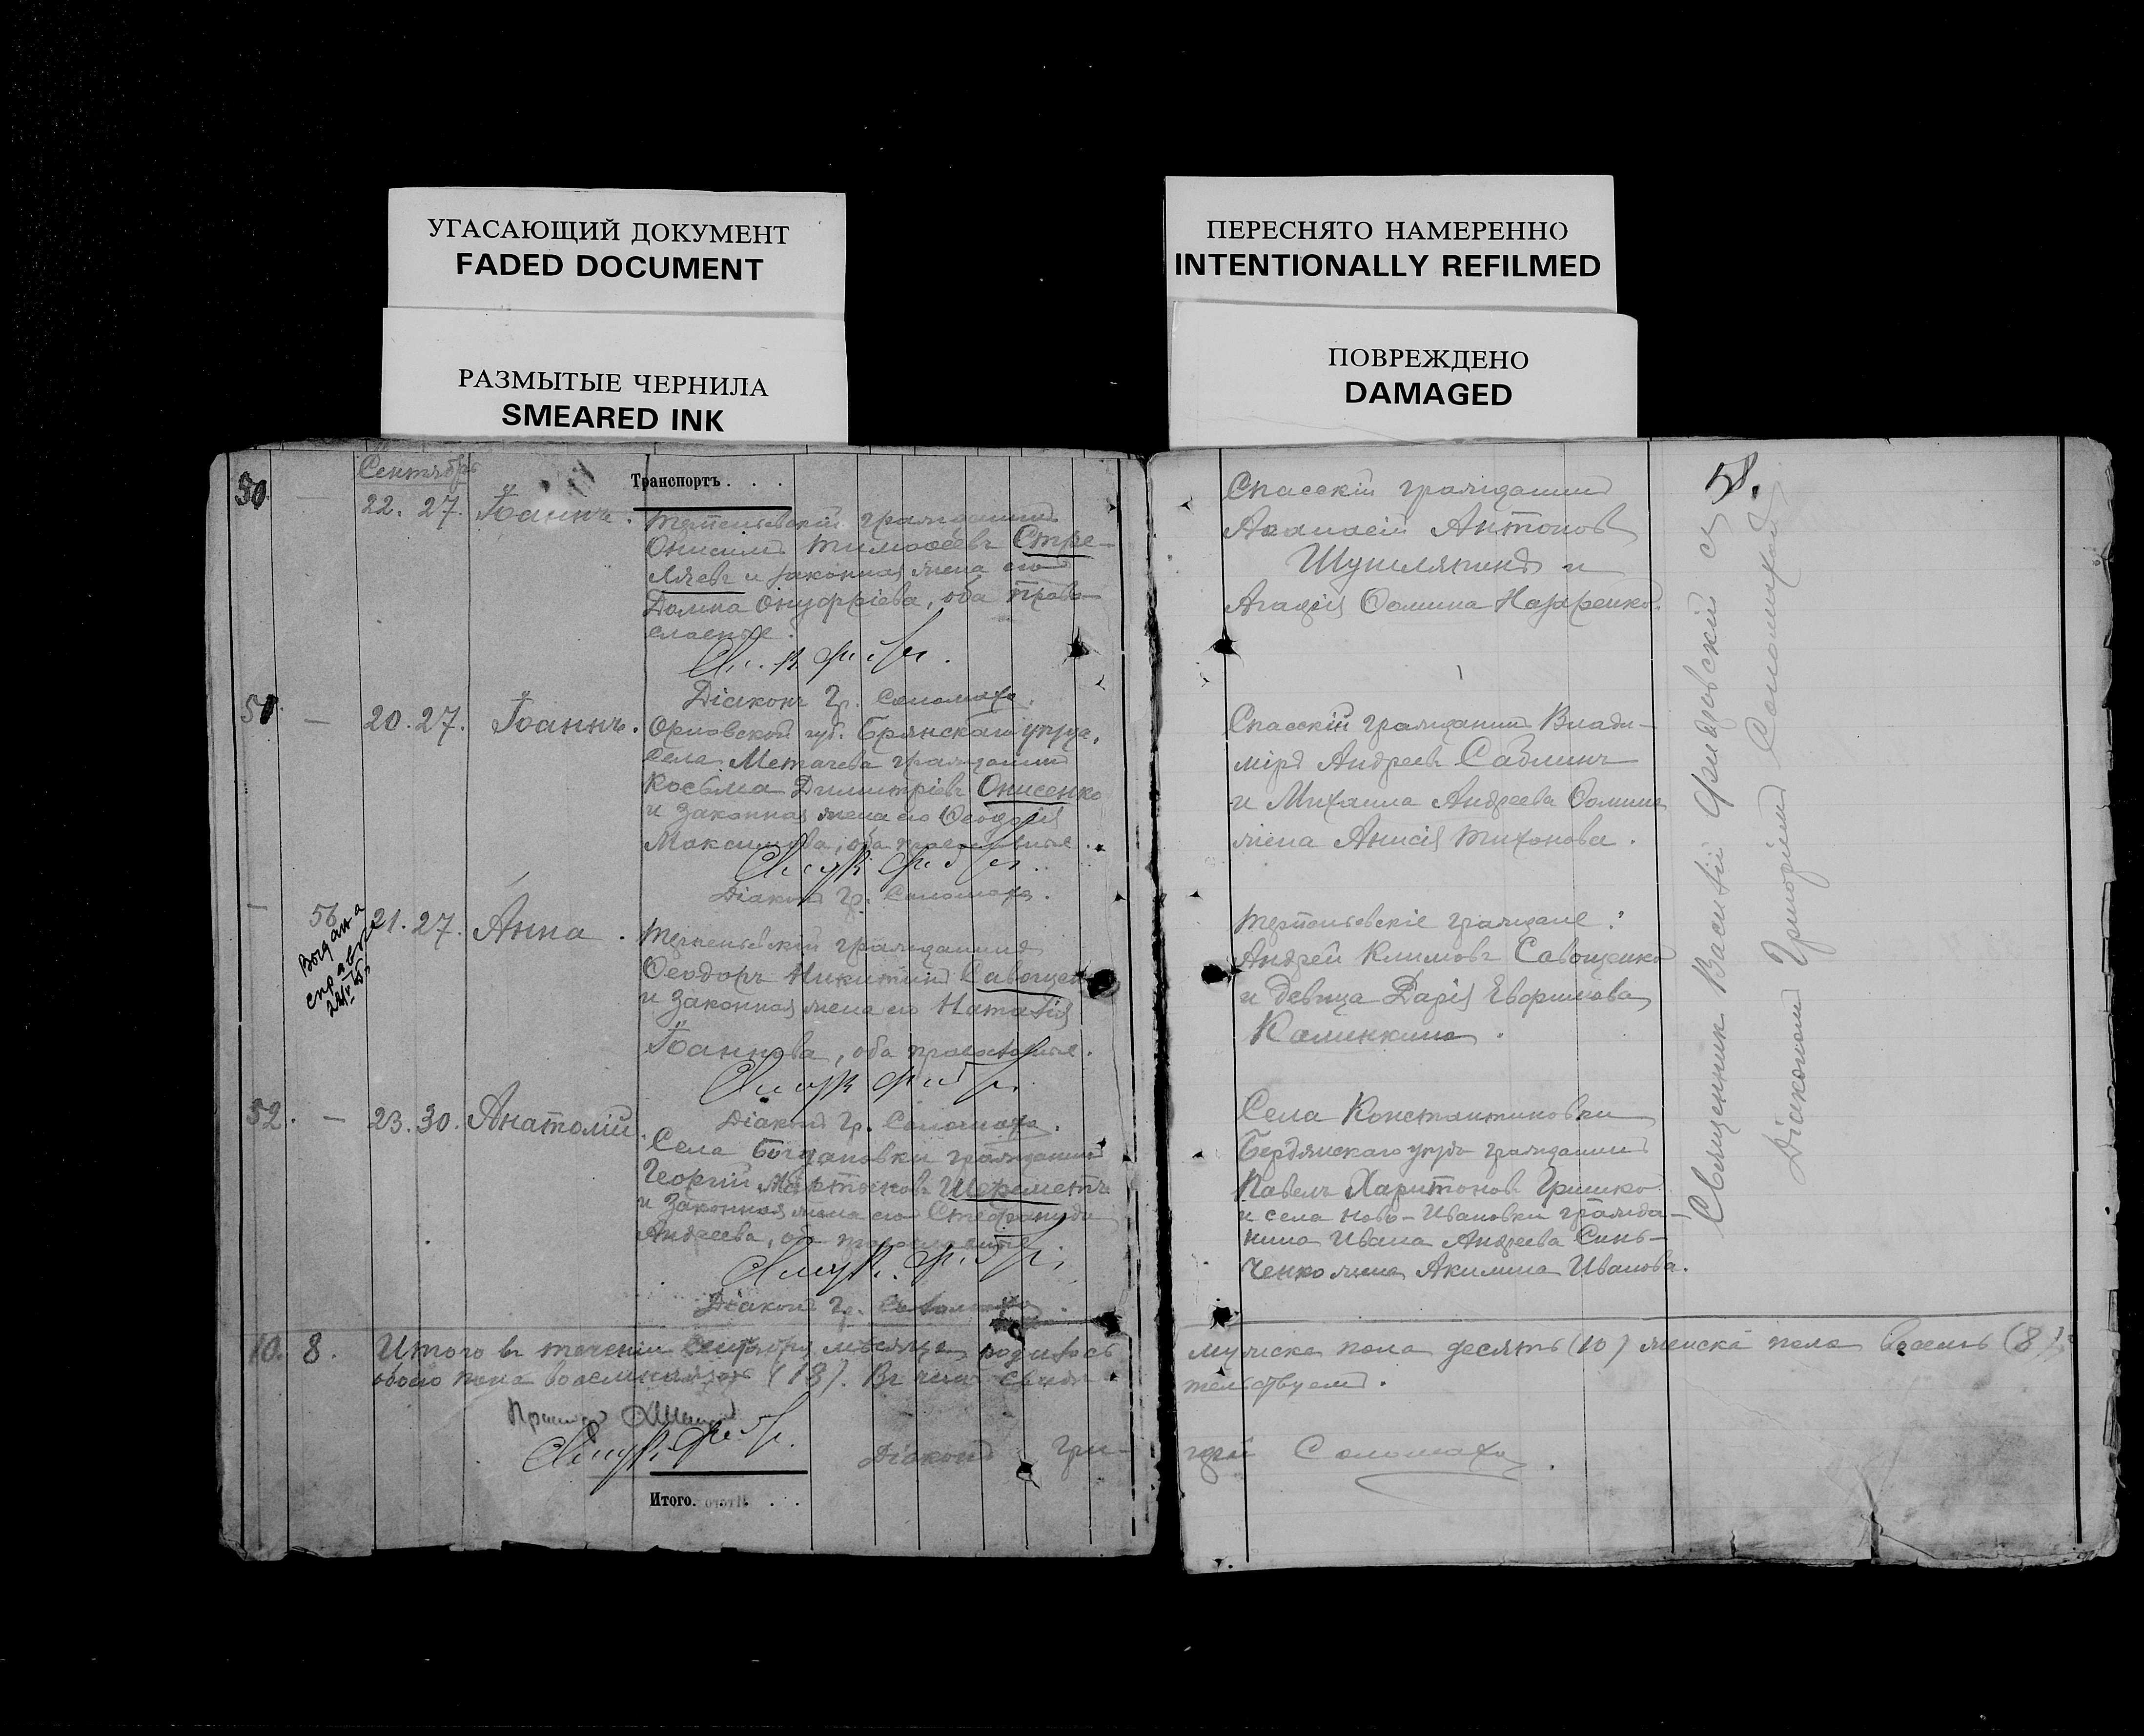 УГАСАЮЩИЙ ДОКУМЕНТ
FADED DOCUMENT
РАЗМЫТЫЕ ЧЕРНИЛА
SMEARED INK
ПЕРЕСНЯТО НАМЕРЕННО
INTENTIONALLY REFILMED
ПОВРЕЖДЕНО
DAMAGED
Сентябрь
Транспортъ . . .
50. — 22. 27. Іоаннъ.
гражданинъ
Онисимъ Тимофеевъ Стре-
ляевъ и законная жена его
Домна Онуфріева, оба право-
славные.
Діаконъ Гр. Соломаха.
51. — 20. 27. Іоаннъ.
Орловской губ. Брянскаго уезда,
села гражданинъ
Косьма Димитріевъ Онисенко
и законная жена его Феодосія
Максимова, оба православные.
Діаконъ Гр. Соломаха.
— 56 21. 27. Анна.
Выдана
справка
гражданинъ
Ѳеодоръ Никитинъ Савощен
и законная жена его Наталія
Іоаннова, оба православные.
Діаконъ Гр. Соломаха.
52. — 23. 30. Анатолій.
Села Богдановки гражданинъ
Георгій Мартыновъ Шереметъ
и законная жена его Стефанида
Андреева, оба православные.
Діаконъ Гр. Соломаха.
10. 8. Итого въ теченіи Сентября месяца родилось
обоего пола восемнадцать (18). Въ чемъ свиде
Діаконъ Гри-
Итого. . . .
58.
Спасскій гражданинъ
Афанасій Антоновъ
Шушляпинъ и
Агафія Фомина Назаренко.
Спасскій гражданинъ Влади-
міръ Андреевъ Саблинъ
и Михаила Андреева Фомина
жена Анисія Тихонова.
граждане:
Андрей Климовъ Савощенко
и девица Дарія Евфимова
Калинкина.
Села Константиновки
Бердянскаго уезда гражданинъ
Павелъ Харитоновъ Гришко
и села Ново-Ивановки гражда-
нина Ивана Андреева Синь-
ченко жена Акилина Иванова.
мужска пола десять (10) женска пола восемь (8)
тельствуемъ.
горій Соломаха.
Священник Василій
Діаконъ Григорій Соломаха